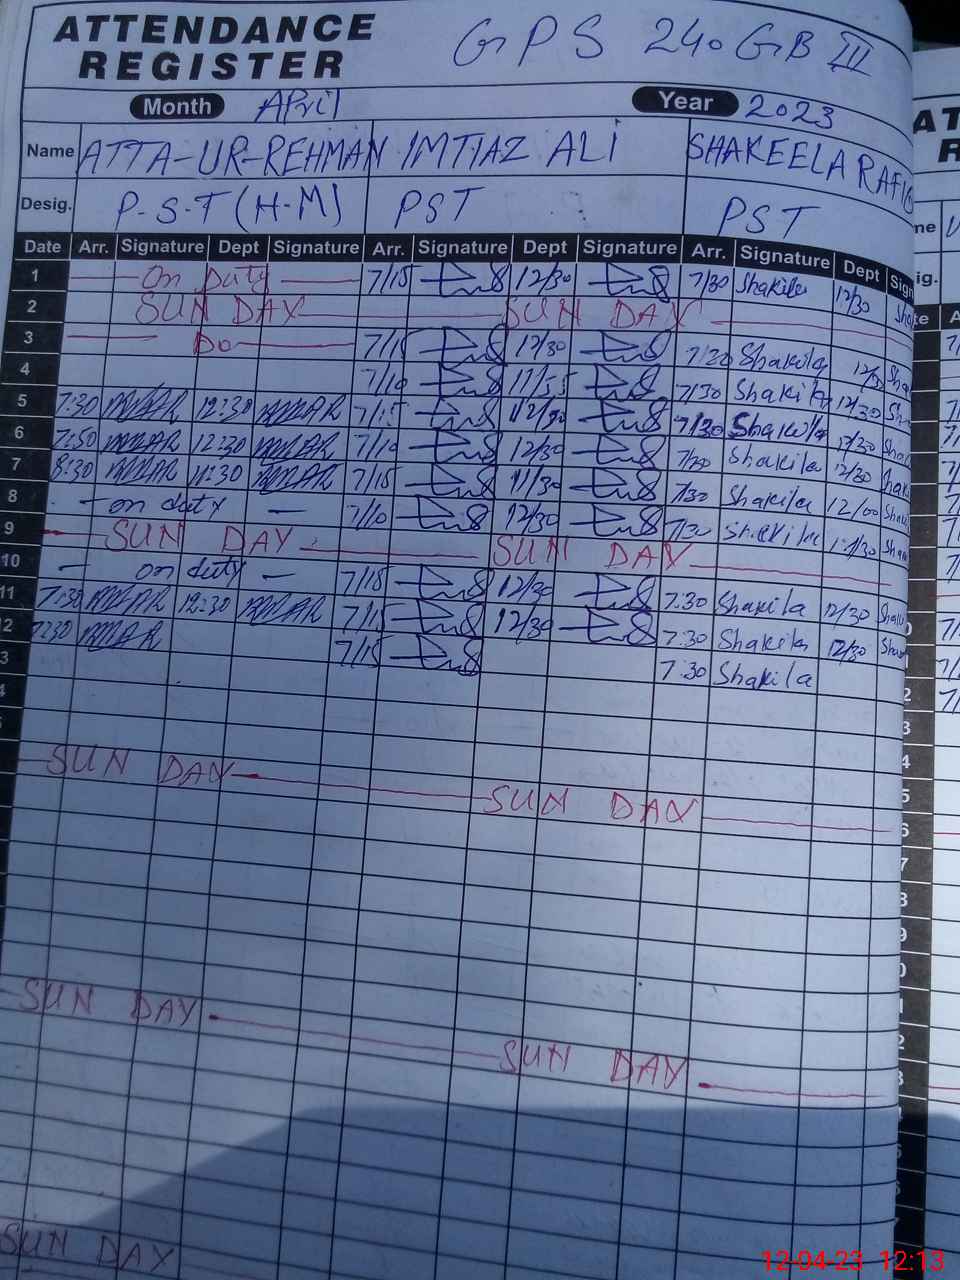 ATTENDANCE REGISTER GPS 240 GB III
Month April Year 2023
Name ATTA-UR-REHMAN IMTIAZ ALI SHAKEELA RAFIQ
Desig. P.S.T (H.M) PST PST
Date Arr. Signature Dept Signature Arr. Signature Dept Signature Arr. Signature Dept Sign
1 On Duty 7/15 12/30 7/30 Shakila 12/30 Sha
2 SUN DAY SUN DAY
3 Do 7/15 12/30 7/30 Shakila 12/30 Sha
4 7/10 11/55 7/30 Shakila 12/30 Sh
5 7:30 12:30 7/15 12/30 7/30 Shakila 12/30 Sha
6 7:50 12:30 7/10 12/30 7/30 Shakila 12/30 Shak
7 8:30 11:30 7/15 11/30 7/30 Shakila 12/00 Sha
8 on duty 7/10 12/30 7/30 Shakila Sha
9 SUN DAY SUN DAY
10 on duty 7/15 12/30 7:30 Shakila 12/30 Shak
11 7:30 12:30 7/15 12/30 7:30 Shakila 12/30 Sha
2 7:30 7/15 7:30 Shakila
3
4
SUN DAY SUN DAY
SUN DAY SUN DAY
SUN DAY
12-04-23 12:13